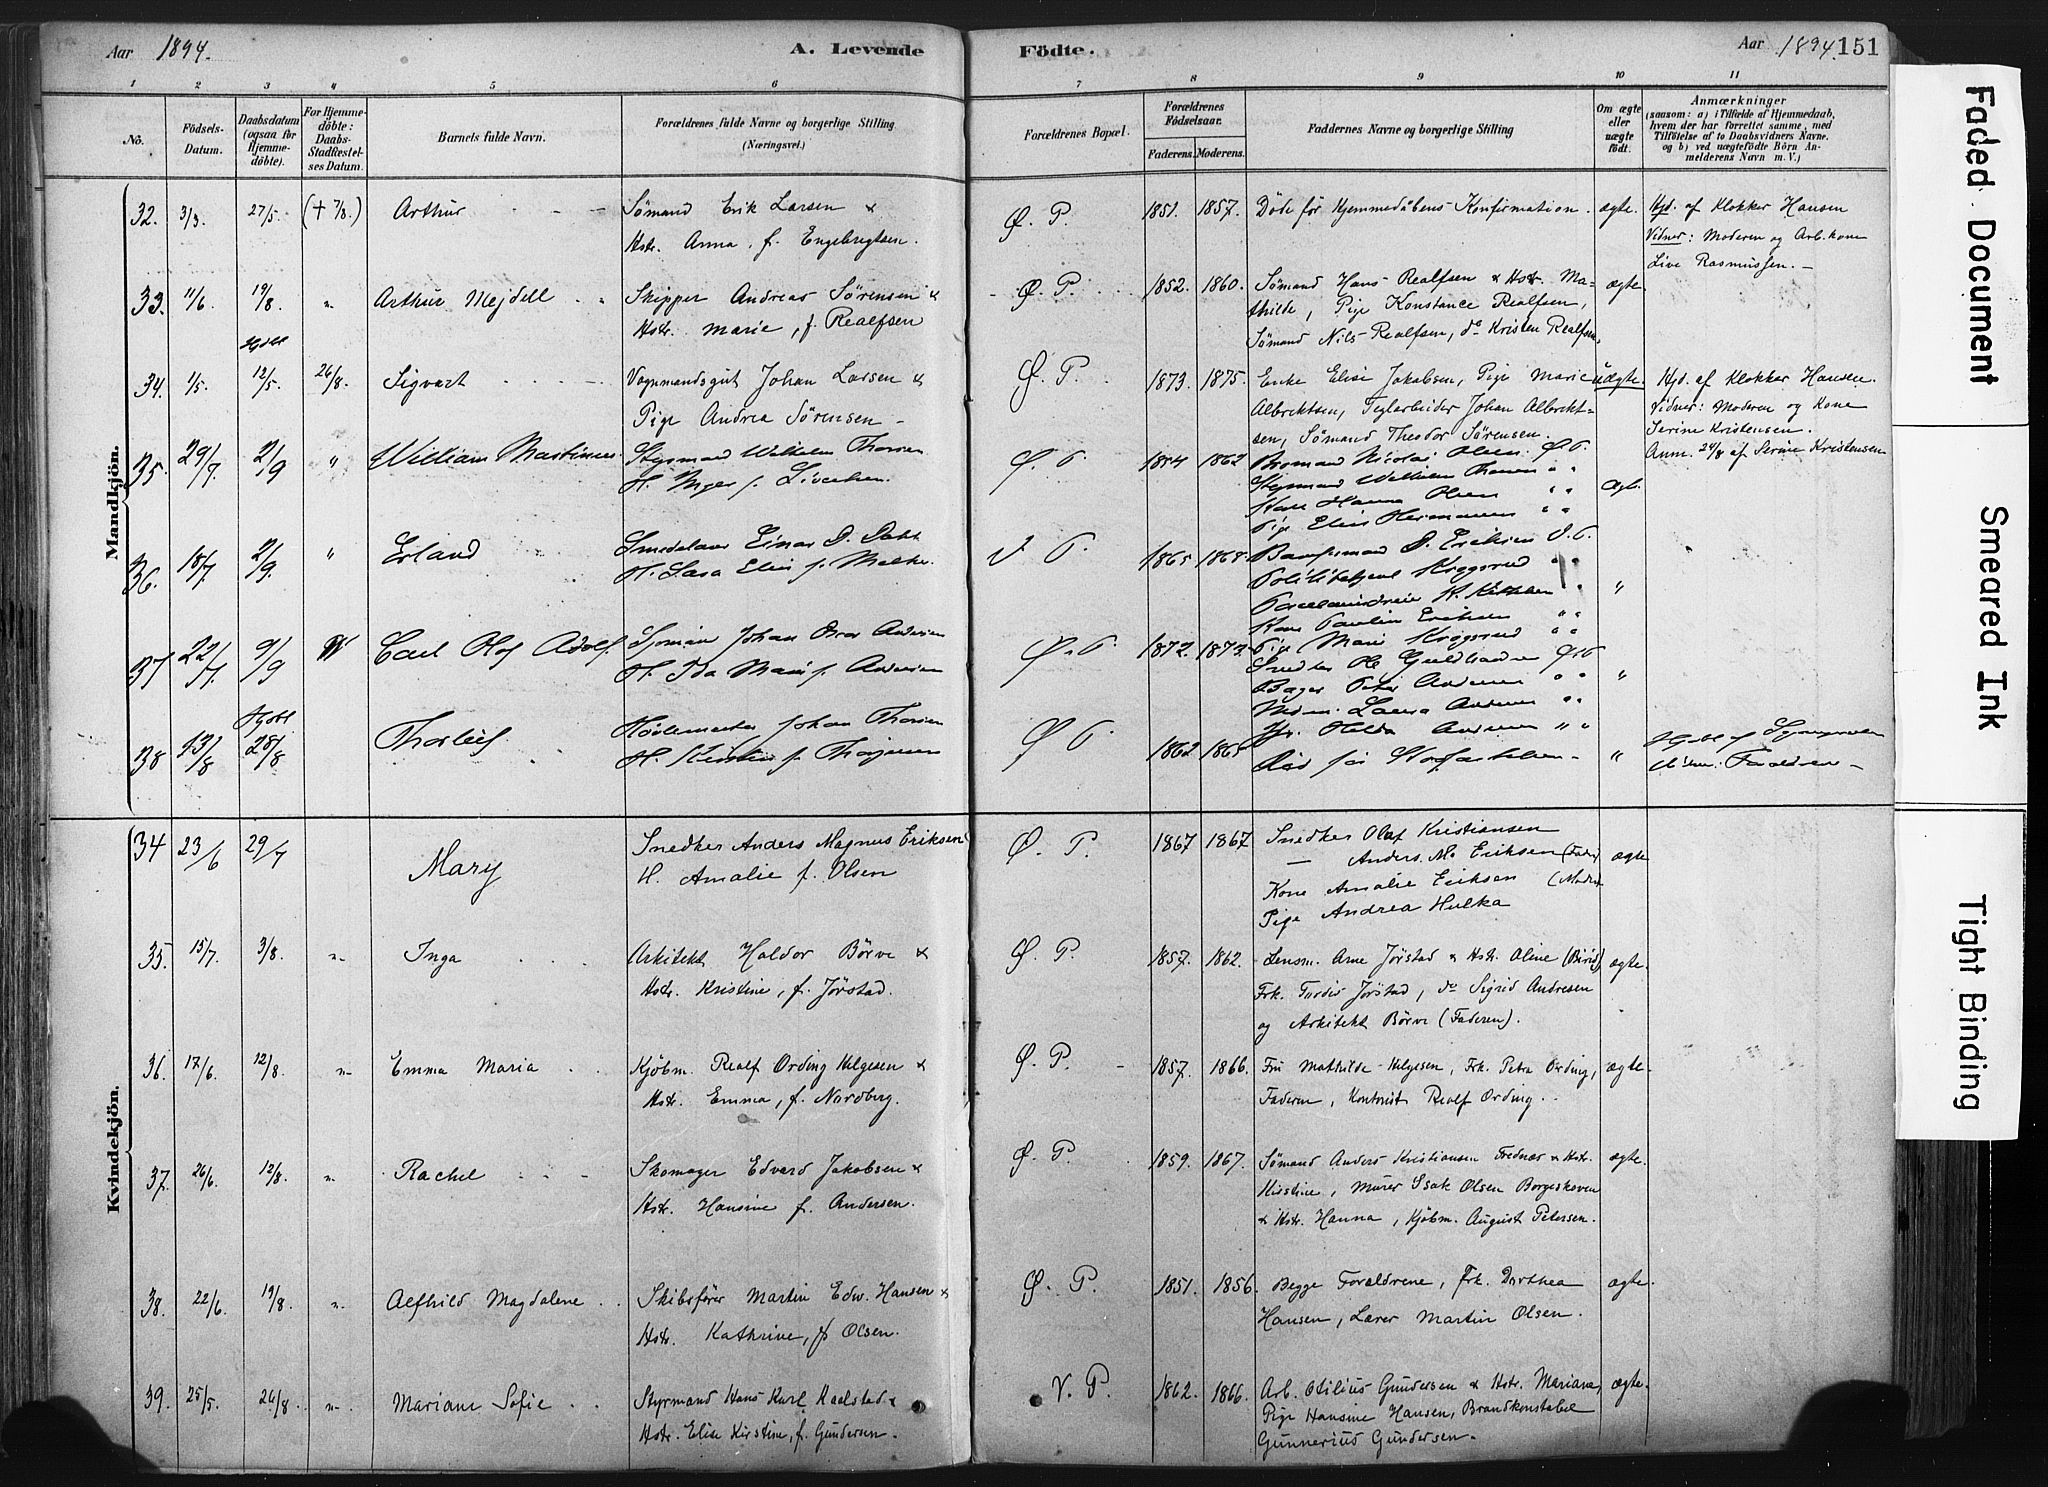 Aar 1894.
A. Levende
Födte.
Aar 1894. 151
1 2 3 4 5 6 7 8 9 10 11
No.
Födsels-
Datum.
Daabsdatum
(ogsaa for
Hjemme-
döbte).
For Hjemme-
döbte:
Daabs-
Stadfæstel-
ses Datum.
Barnets fulde Navn.
Forældrenes fulde Navne og borgerlige Stilling
(Næringsvei.)
Forældrenes Bopæl.
Forældrenes
Födselsaar.
Faderens. Moderens.
Faddernes Navne og borgerlige Stilling
Om ægte
eller
uægte
födt.
Anmærkninger
(saasom: a) i Tilfælde af Hjemmedaab,
hvem der har forrettet samme, med
Tilföielse af to Daabsvidners Navne.
og b) ved uægtefödte Börn An-
melderens Navn m. V.)
Mandkjön.
32. 3/3. 27/5. (+ 7/8.) Arthur Sömand Erik Larsen &
Hstr. Anna, f. Engebregtsen.
Ø. P. 1851. 1857. Döde för Hjemmedåbens Konfirmation. ægte.
Hjd. af Klokker Hansen
Vidner: Moderen og Arb.kone
Live Rasmussen. –
33. 11/6. 19/8. " Arthur Mejdell Skipper Andreas Sörensen &
Hstr. Marie, f. Realfsen
Ø. P. 1852. 1860. Sömand Hans Realfsen & Hstr. Ma-
thilde, Pige Konstance Realfsen,
Sömand Nils Realfsen, do Kristen Realfsen.
ægte.
Hjdbt
34. 1/5. 12/5. 26/8. Sigvart Vognmandsgut Johan Larsen &
Pige Andrea Sörensen –
Ø. P. 1873. 1875. Enke Elise Jakobsen, Pige Marie
Albrektsen, Teglarbeider Johan Albrekt-
sen, Sömand Theodor Sörensen.
uægte.
Hjd. af Klokker Hansen.
Vidner: Moderen og Kone
Serine Kristensen.
Anm. 24/8 af Serine Kristensen
35. 29/7. 2/9 " William Martinius Styrmand Wilhelm Thorsen
H. Inger f. Sivertsen.
Ø. P. 1854 1862 Nicolai Olsen Ø P.
Styrmand Wilhelm Thorsen " "
Kone Hanna Olsen " "
Pige Elise Hermansen " "
Ægte.
36. 18/7. 2/9. " Erland
Einar D.
H. Sara Elise f.
V P. 1865 1868. D. Eriksen V. P.
Kone Pauline Eriksen " "
Pige Marie " "
"
37 22/7. 9/9 Carl Olof Adolf. Sjöman Johan Oscar Andersen
H. Ida Marie f. Andersen
Ø. P. 1872. 1872. Snedker Ole Ø P
Bager Peter Andersen " "
Laura Andersen " "
Hulda Andersen " "
"
Hjdbt
38 13/8 28/8 Thorleif Johan Thorsen
H. Kirstine f.
Ø P. 1862 1865 Död för Stadfæstelsen – "
Hjdbt af
Vidn: Forældrene –
Kvindekjön.
34 23/6 29/7 Mary Snedker Anders Magnus Eriksen
H. Amalie f. Olsen
Ø. P. 1867 1867 Snedker Olaf Kristiansen
— Anders M. Eriksen (Fader)
Kone Amalie Eriksen (Moder)
Pige Andrea Hulka
ægte
35. 15/7. 3/8. " Inga Arkitekt Haldor Börve &
Hstr. Kristine, f. Jörstad.
Ø. P. 1857. 1862. Lensm. Arne Jörstad & Hstr. Oline (Birid),
Frk. Tordis Jörstad, do Sigrid Andresen
og Arkitekt Börve (Faderen).
ægte.
36. 17/6. 12/8. " Emma Maria Kjöbm. Realf Ording Helgesen &
Hstr. Emma, f. Nordberg.
Ø. P. 1857. 1866. Fru Mathilde Helgesen, Frk. Petra Ording,
Faderen, Kontorist Realf Ording.
ægte.
37. 26/6. 12/8. " Rachel Skomager Edvard Jakobsen &
Hstr. Hansine f. Andersen.
Ø. P. 1859. 1867. Sömand Anders Kristiansen Frednæs & Hstr.
Kirstine, Murer Isak Olsen Borgeskoven
& Hstr. Hanna, Kjöbm. August Petersen.
ægte.
38. 22/6. 19/8. " Alfhild Magdalene Skibsförer Martin Edw. Hansen &
Hstr. Kathrine, f. Olsen.
Ø. P. 1851. 1856. Begge Forældrene, Frk. Dorthea
Hansen, Lærer Martin Olsen.
ægte.
39. 25/5. 26/8. " Mariane Sofie Styrmand Hans Karl Kaalstad &
Hstr. Elise Kirstine, f. Gundersen.
V. P. 1862. 1866. Arb. Otilius Gundersen & Hstr. Mariane,
Pige Hansine Hansen, Brandkonstabel
Gunnerius Gundersen.
ægte.
Faded Document
Smeared Ink
Tight Binding